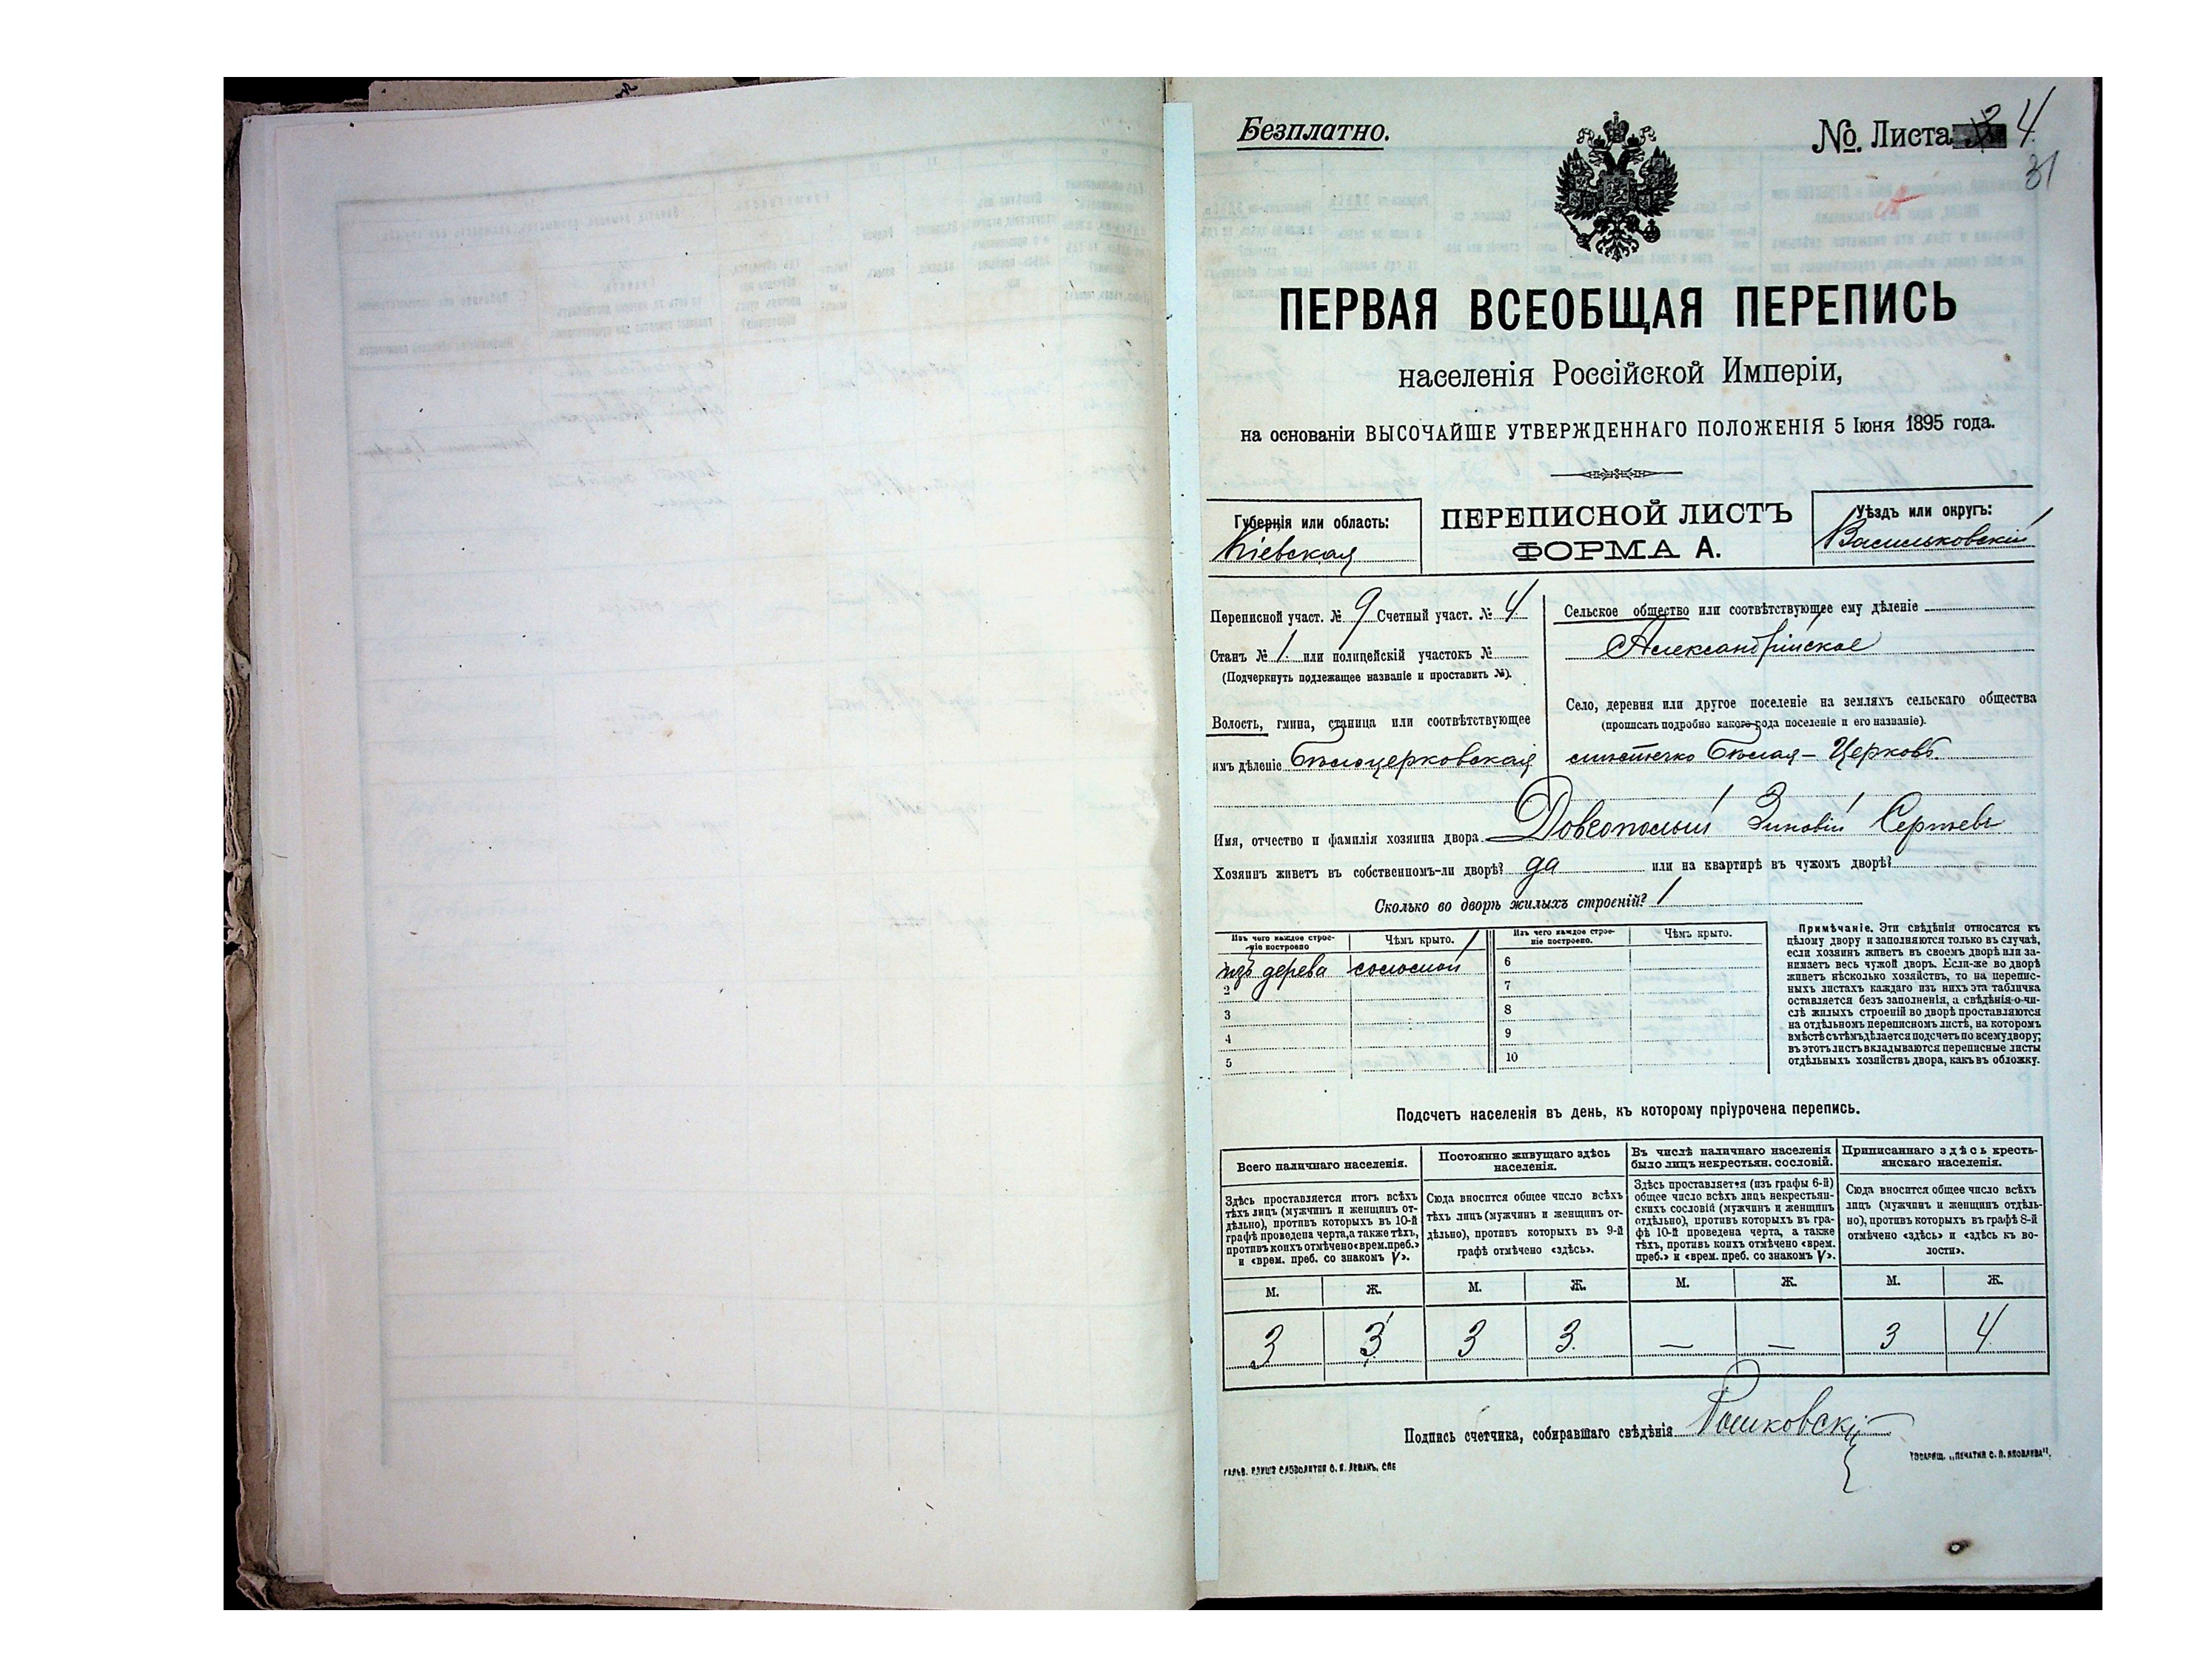 Безплатно.
№. Листа 4
31
ПЕРВАЯ ВСЕОБЩАЯ ПЕРЕПИСЬ
населенія Россійской Имперіи,
на основаніи ВЫСОЧАЙШЕ УТВЕРЖДЕННАГО ПОЛОЖЕНІЯ 5 Іюня 1895 года.
Губернія или область:
Кіевская
ПЕРЕПИСНОЙ ЛИСТЪ
ФОРМА А.
Уѣздъ или округъ:
Васильковскій
Переписной участ. № 9 Счетный участ. № 4
Станъ № 1. или полицейскій участокъ №
(Подчеркнуть подлежащее названіе и проставить №).
Волость, гмина, станица или соотвѣтствующее
имъ дѣленіе Бѣлоцерковская
Сельское общество или соотвѣтствующее ему дѣленіе
Александрійское
Село, деревня или другое поселеніе на земляхъ сельскаго общества
(прописать подробно какого рода поселеніе и его названіе).
мѣстечко Бѣлая-Церковь.
Имя, отчество и фамилія хозяина двора Зиновій Сергѣевъ
Хозяинъ живетъ въ собственномъ-ли дворѣ? да или на квартирѣ въ чужомъ дворѣ?
Сколько во дворѣ жилыхъ строеній? 1
Изъ чего каждое строе-
ніе построено
Чѣмъ крыто.
Изъ чего каждое строе-
ніе построено.
Чѣмъ крыто.
изъ дерева соломой
2
3
4
5
6
7
8
9
10
Примѣчаніе. Эти свѣдѣнія относятся къ
цѣлому двору и заполняются только въ случаѣ,
если хозяинъ живетъ въ своемъ дворѣ или за-
нимаетъ весь чужой дворъ. Если-же во дворѣ
живетъ нѣсколько хозяйствъ, то на перепис-
ныхъ листахъ каждаго изъ нихъ эта табличка
оставляется безъ заполненія, а свѣдѣнія о чи-
слѣ жилыхъ строеній во дворѣ проставляются
на отдѣльномъ переписномъ листѣ, на которомъ
вмѣстѣ съ тѣмъ дѣлается подсчетъ по всему двору;
въ этотъ листъ вкладываются переписные листы
отдѣльныхъ хозяйствъ двора, какъ въ обложку.
Подсчетъ населенія въ день, къ которому пріурочена перепись.
Всего наличнаго населенія.
Здѣсь проставляется итогъ всѣхъ
тѣхъ лицъ (мужчинъ и женщинъ от-
дѣльно), противъ которыхъ въ 10-й
графѣ проведена черта, а также тѣхъ,
противъ коихъ отмѣчено «врем. преб.»
и «врем. преб. со знакомъ V».
Постоянно живущаго здѣсь
населенія.
Сюда вносится общее число всѣхъ
тѣхъ лицъ (мужчинъ и женщинъ от-
дѣльно), противъ которыхъ въ 9-й
графѣ отмѣчено «здѣсь».
Въ числѣ наличнаго населенія
было лицъ некрестьян. сословій.
Здѣсь проставляется (изъ графы 6-й)
общее число всѣхъ лицъ некрестьян-
скихъ сословій (мужчинъ и женщинъ
отдѣльно), противъ которыхъ въ гра-
фѣ 10-й проведена черта, а также
тѣхъ, противъ коихъ отмѣчено «врем.
преб.» и «врем. преб. со знакомъ V».
Приписаннаго здѣсь кресть-
янскаго населенія.
Сюда вносится общее число всѣхъ
лицъ (мужчинъ и женщинъ отдѣль-
но), противъ которыхъ въ графѣ 8-й
отмѣчено «здѣсь» и «здѣсь къ во-
лости».
М. Ж. М. Ж. М. Ж. М. Ж.
3 3 3 3 — — 3 4
Подпись счетчика, собиравшаго свѣдѣнія
ТОВАРИЩ. „ПЕЧАТНЯ С. П. ЯКОВЛЕВА".